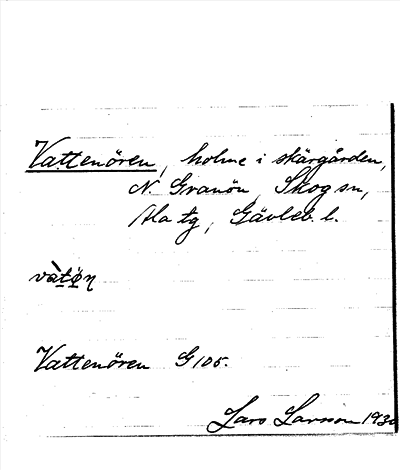 Vattenören, holme i skärgården,
N. Granön, Skog sn,
Ala tg, Gävleb. l.
vàtø̠n
Vattenören G 105.
Lars Larsson 193